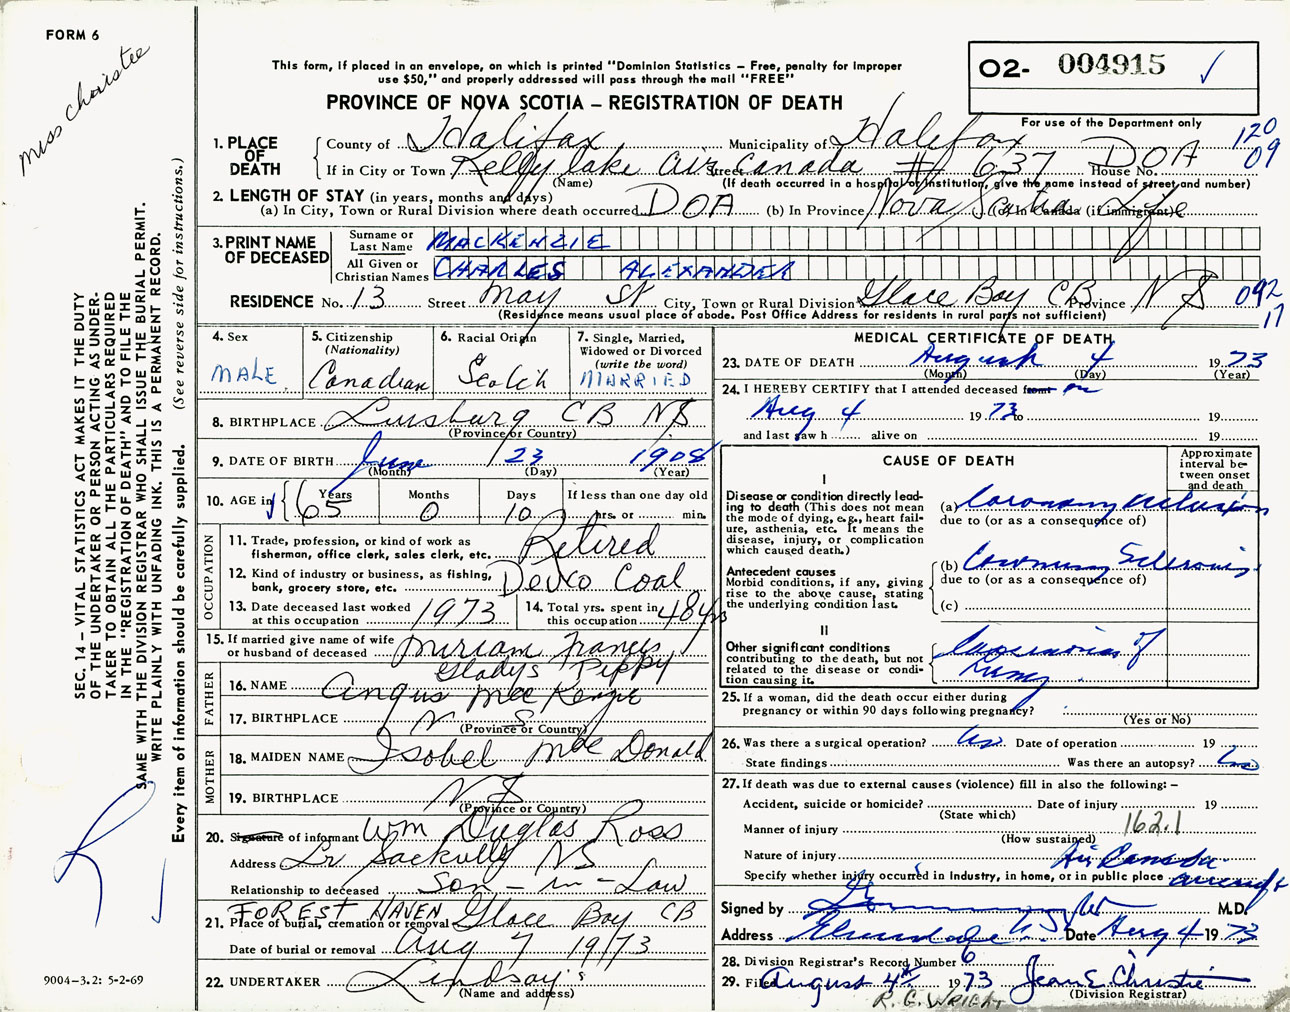 FORM 6
Miss Christee
This form, if placed in an envelope, on which is printed "Dominion Statistics – Free, penalty for improper
use $50," and properly addressed will pass through the mail "FREE"
PROVINCE OF NOVA SCOTIA – REGISTRATION OF DEATH
O2- 004915 ✓
For use of the Department only
120
09
1. PLACE OF DEATH
County of Halifax Municipality of Halifax
If in City or Town Kelly lake Air Canada # 637 DOA
(Name) Street House No.
(If death occurred in a hospital or institution, give the name instead of street and number)
2. LENGTH OF STAY (in years, months and days)
(a) In City, Town or Rural Division where death occurred DOA (b) In Province Nova Scotia (c) In Canada (if immigrant) Life
3. PRINT NAME OF DECEASED
Surname or Last Name MACKENZIE
All Given or Christian Names CHARLES ALEXANDER
RESIDENCE No. 13 Street May St City, Town or Rural Division Glace Bay CB Province N S 092
17
(Residence means usual place of abode. Post Office Address for residents in rural parts not sufficient)
4. Sex MALE
5. Citizenship (Nationality) Canadian
6. Racial Origin Scotch
7. Single, Married, Widowed or Divorced (write the word) MARRIED
8. BIRTHPLACE Luisburg CB NS
(Province or Country)
9. DATE OF BIRTH June 23 1908
(Month) (Day) (Year)
10. AGE in Years 65 Months 0 Days 10 If less than one day old hrs. or min.
OCCUPATION
11. Trade, profession, or kind of work as fisherman, office clerk, sales clerk, etc. Retired
12. Kind of industry or business, as fishing, bank, grocery store, etc. Devco Coal
13. Date deceased last worked at this occupation 1973
14. Total yrs. spent in this occupation 48 yrs
15. If married give name of wife or husband of deceased Miriam Francis
Gladys Pippy
FATHER
16. NAME Angus MacKenzie
17. BIRTHPLACE N S
(Province or Country)
MOTHER
18. MAIDEN NAME Isobel Mac Donald
19. BIRTHPLACE N S
(Province or Country)
20. Signature of informant Wm Duglas Ross
Address Lr Sackville NS
Relationship to deceased Son-in-Law
21. Place of burial, cremation or removal FOREST HAVEN Glace Bay CB
Date of burial or removal Aug 7 1973
22. UNDERTAKER Lindsay's
(Name and address)
MEDICAL CERTIFICATE OF DEATH
23. DATE OF DEATH August 4 1973
(Month) (Day) (Year)
24. I HEREBY CERTIFY that I attended deceased from on
Aug 4 1973 to 19
and last saw h alive on 19
CAUSE OF DEATH
Approximate interval between onset and death
I
Disease or condition directly leading to death (This does not mean the mode of dying, e.g., heart failure, asthenia, etc. It means the disease, injury, or complication which caused death.)
(a) Coronary Occlusion
due to (or as a consequence of)
Antecedent causes
Morbid conditions, if any, giving rise to the above cause, stating the underlying condition last.
(b) Coronary Sclerosis
due to (or as a consequence of)
(c)
II
Other significant conditions contributing to the death, but not related to the disease or condition causing it.
Carcinoma of
Lung
25. If a woman, did the death occur either during pregnancy or within 90 days following pregnancy?
(Yes or No)
26. Was there a surgical operation? Date of operation 19
State findings Was there an autopsy?
27. If death was due to external causes (violence) fill in also the following: –
Accident, suicide or homicide? Date of injury 19
(State which)
Manner of injury 162.1
(How sustained)
Nature of injury Air Canada
Specify whether injury occurred in industry, in home, or in public place aircraft
Signed by M.D.
Address Date Aug 4 1973
28. Division Registrar's Record Number 6
29. Filed August 4th 1973 Jean E. Christie
(Division Registrar)
R. C. WRIGHT
SEC. 14 – VITAL STATISTICS ACT MAKES IT THE DUTY
OF THE UNDERTAKER OR PERSON ACTING AS UNDER-
TAKER TO OBTAIN ALL THE PARTICULARS REQUIRED
IN THE "REGISTRATION OF DEATH" AND TO FILE THE
SAME WITH THE DIVISION REGISTRAR WHO SHALL ISSUE THE BURIAL PERMIT.
WRITE PLAINLY WITH UNFADING INK. THIS IS A PERMANENT RECORD.
Every item of information should be carefully supplied. (See reverse side for instructions.)
9004-3.2: 5-2-69